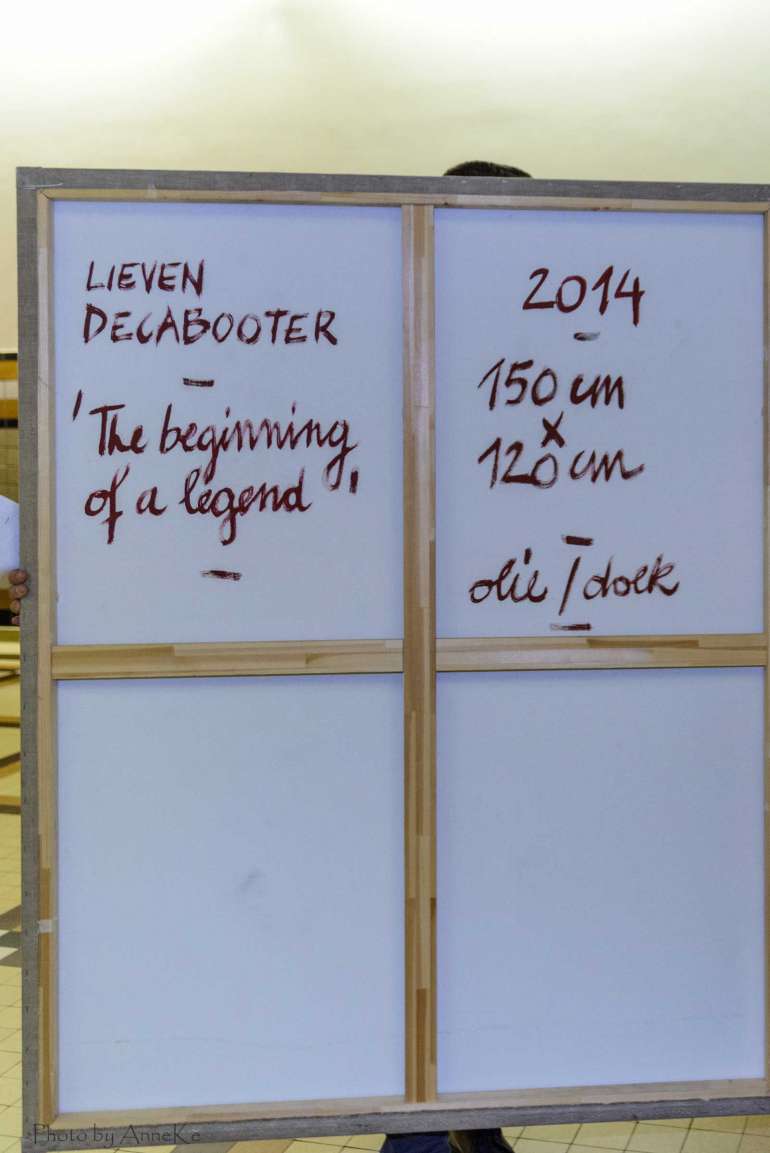 LIEVEN
DECABOOTER
–
'The beginning
of a legend'
–
2014
–
150 cm
x
120 cm
–
olie / doek
–
Photo by AnneKe